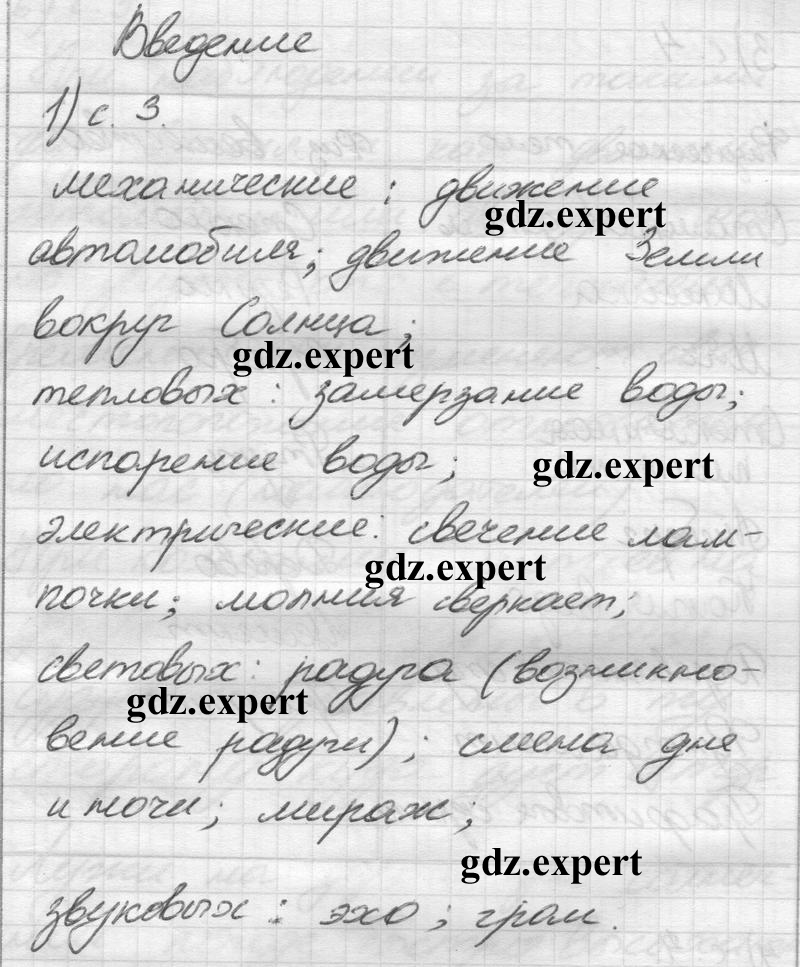 Введение
1) с. 3.
механические: движение
gdz.expert
автомобиля; движение Земли
вокруг Солнца;
gdz.expert
тепловых: замерзание воды;
испарение воды;
gdz.expert
электрические: свечение лам-
gdz.expert
почки; молния сверкает;
световых: радуга (возникно-
gdz.expert
вение радуги); смена дне
и ночи; мираж;
gdz.expert
звуковых: эхо; гром.